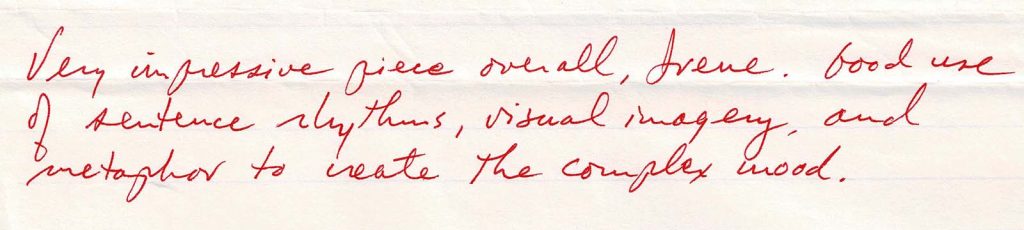 Very impressive piece overall, Irene. Good use
of sentence rhythms, visual imagery, and
metaphor to create the complex mood.